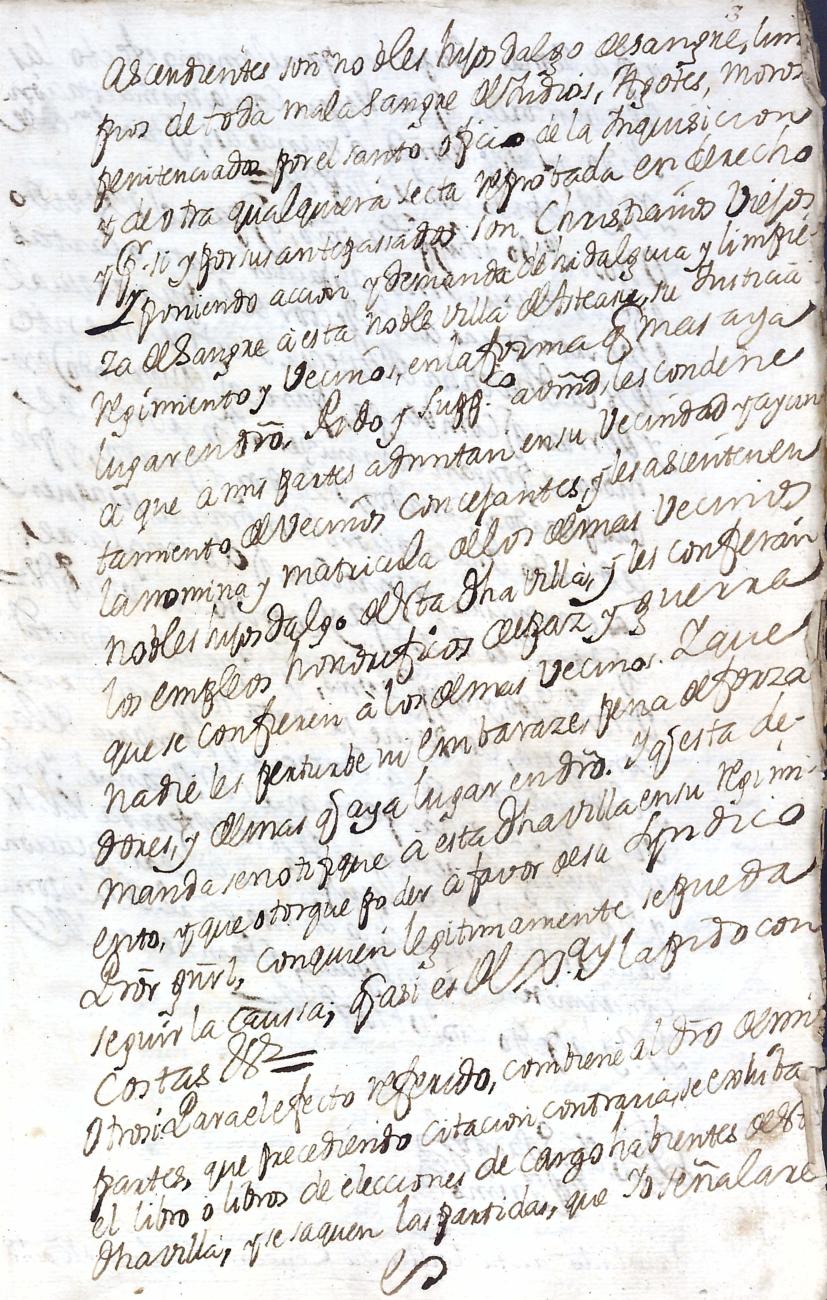 3
Ascendientes son nobles hijos dalgo de sangre, lim
pios de toda mala sangre de Judios, Agotes, Moros
penitenciados por el santo oficio de la Inquisicion
y de otra qualquiera secta reprobada en derecho
y pr. si y por sus antepasados son Christianos Viejos
Y poniendo accion y demanda de hidalguia y limpie-
za de Sangre à esta noble villa de Asteasu, su Justicia
regimiento y Vecinos, en la forma q mas aya
lugar en dro. Pido y Supp.co a vmd, les condene
a que a mis partes admitan en su Vecindad y ayun
tamiento de Vecinos Concejantes, y les asienten en
la nomina y matricula de los demas Vecinos
nobles hijos dalgo de esta dha villa, y les confieran
los empleos honorificos de paz y guerra
que se confieren à los demas vecinos. Y que
nadie les perturbe ni embaraze, pena de forza
dores, y demas q aya lugar en dro. Y q esta de-
manda se notifique à esta dha villa en su regimi-
ento, y que otorgue poder à favor de su Syndico
Pror gñrl, con quien legitimamente se pueda
seguir la Caussa; q asi es de Justa y la pido con
Costas &&=
Otrosi Para el efecto referido, combiene al dro de mis
partes, que precediendo citacion contraria, se exsiba
el libro o libros de elecciones de cargo habientes de esta
dha villa, y se saquen las partidas, que Yo señalare